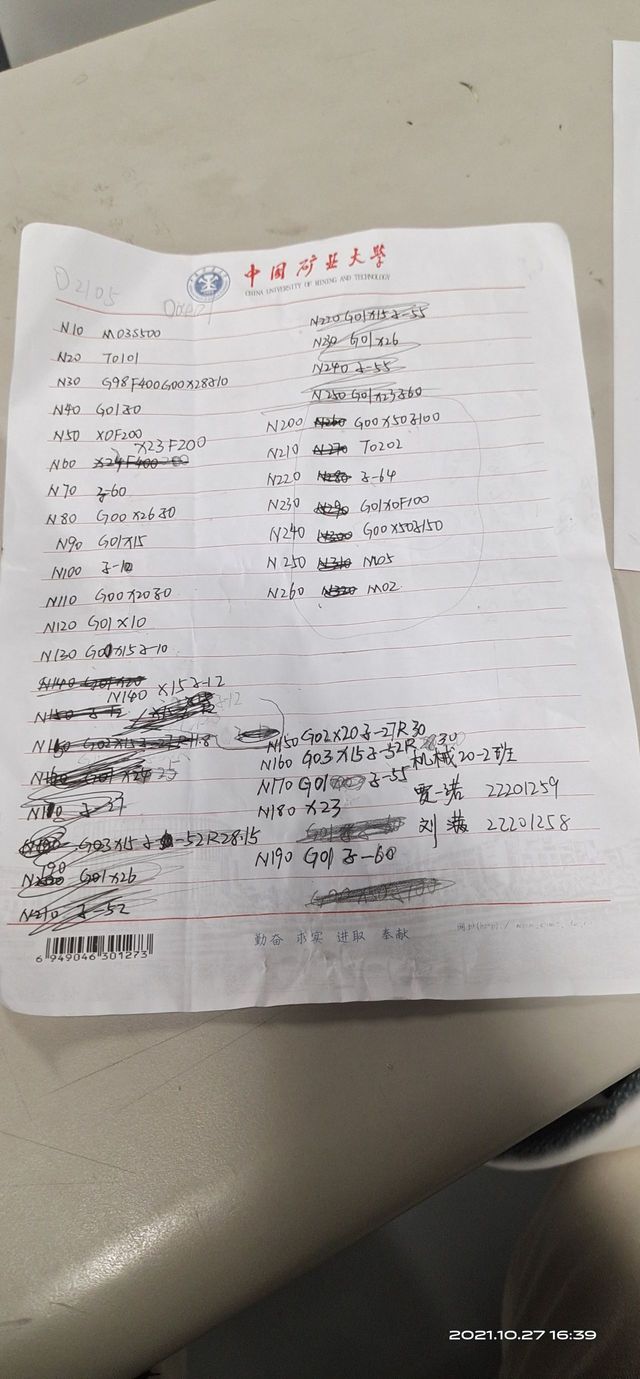 中国矿业大学
CHINA UNIVERSITY OF MINING AND TECHNOLOGY
O2105
N10 M03S500
N20 T0101
N30 G98F400G00X28Z10
N40 G01Z0
N50 X0F200
X23F200
N60 X24F400
N70 Z-60
N80 G00X26Z0
N90 G01X15
N100 Z-10
N110 G00X20Z0
N120 G01X10
N130 G01X15Z-10
N140 G01X20
N140 X15Z-12
N150 Z-12
G02X15Z-27R
G01X24
Z-37
G03X15Z-52R28.15
190 G01X26
N210 Z-52
N220 G01X15Z-55
N230 G01X26
N240 Z-55
N250 G01X23Z60
N200 N260 G00X50Z100
N210 N270 T0202
N220 N280 Z-64
N230 N290 G01X0F100
N240 N300 G00X50Z150
N250 N310 M05
N260 N320 M02
N150 G02X20Z-27R30
N160 G03X15Z-52R30
机械20-2班
N170 G01 Z-55
贾一诺 22201259
N180 X23
刘 22201258
N190 G01Z-60
6 949046 301273
勤奋 求实 进取 奉献
2021.10.27 16:39